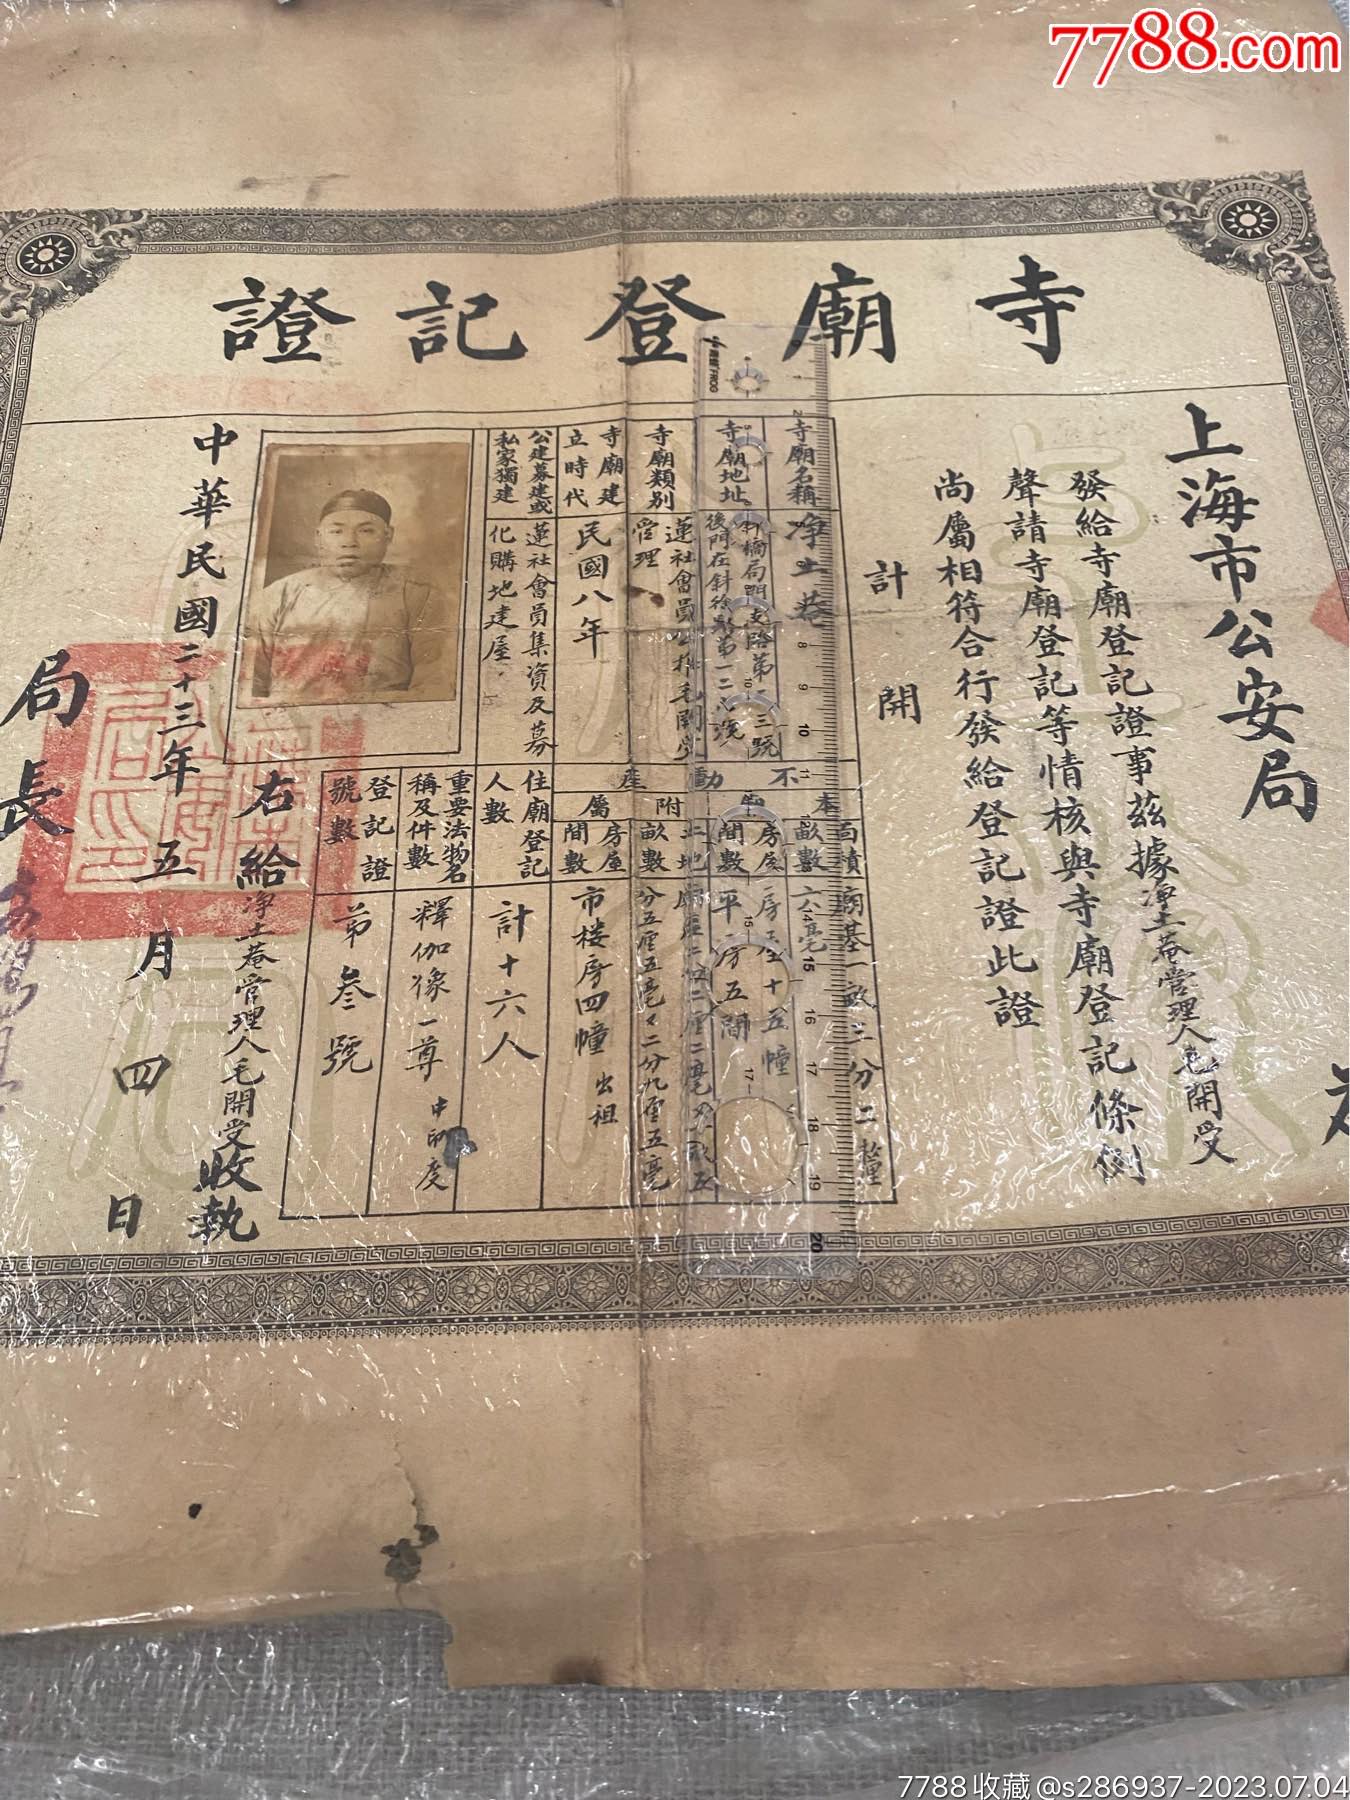 7788.com
寺廟登記證
上海市公安局
發給寺廟登記證事茲據淨土菴管理人毛開受
聲請寺廟登記等情核與寺廟登記條例
尚屬相符合行發給登記證此證
計開
寺廟名稱
淨土菴
寺廟地址
斜橋局門支路第
三號
後門在斜徐路第一二
號
寺廟類別
蓮社會員公推毛開受
管理
寺廟建
立時代
民國八年
公建募建或
私家獨建
蓮社會員集資及募
化購地建屋
不動產
本
附屬
面積
畝數
廟基一畝三分二釐
六毫
房屋
間數
房屋十五幢
平房五間
土地
畝數
分五厘五毫
二分九厘五毫
房屋
間數
市樓房四幢 出租
住廟登記
人數
計十六人
重要法物名
稱及件數
釋伽像一尊 中印度
登記證
號數
第叁號
右給淨土菴管理人毛開受收執
中華民國二十三年五月四日
局長
7788收藏@s286937-2023.07.04